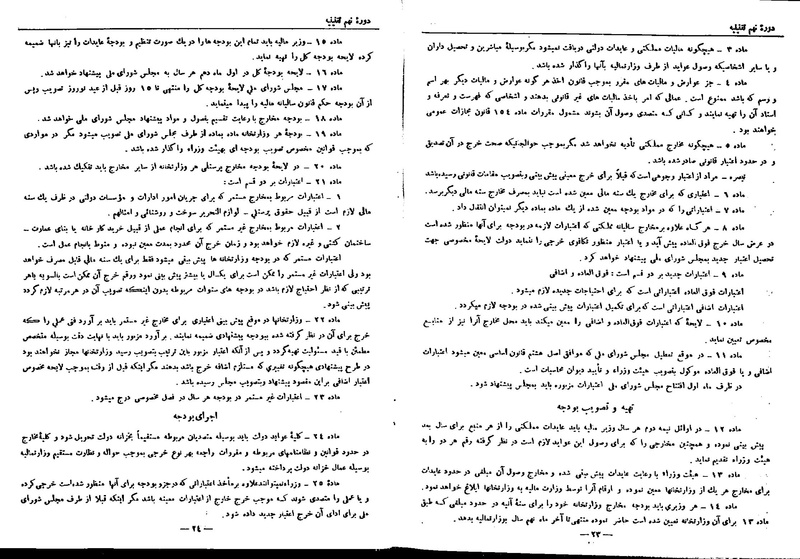 دورهٔ نهم تقنینیه
ماده ۳ – هیچگونه مالیات مملکتی و عایدات دولتی دریافت نمیشود مگر بوسیلهٔ مباشرین و تحصیل داران
و یا سایر اشخاصیکه وصول عواید از طرف وزارتمالیه بآنها واگذار شده باشد.
ماده ۴ – جز عوارض و مالیات های مقرر بموجب قانون اخذ هر گونه عوارض و مالیات دیگر بهر اسم
و رسم که باشد ممنوع است . عمالی که امر باخذ مالیات های غیر قانونی بدهند و اشخاصی که فهرست و تعرفه و
اسناد آن را تهیه نمایند و کسانی که متصدی وصول آن بشوند مشمول مقررات ماده ۱۵۴ قانون مجازات عمومی
خواهند بود .
ماده ۵ – هیچگونه مخارج مملکتی تأدیه نخواهد شد مگر بموجب حوالجاتیکه صحت خرج در آن تصدیق
و در حدود اعتبار قانونی صادر شده باشد .
تبصره – مراد از اعتبار وجوهی است که قبلا برای خرج معینی پیش بینی و بتصویب مقامات قانونی رسیده باشد
ماده ۶ – اعتباری که برای مخارج یک سنه مالی معین شده است نباید بمصرف مخارج سنه مالی دیگر برسد .
ماده ۷ – اعتباراتی را که در مواد بودجه معین شده از یک ماده بماده دیگر نمیتوان انتقال داد .
ماده ۸ – هر گاه علاوه بر مخارج سالیانه مملکتی که اعتبارات لازمه در بودجه برای آنها منظور شده است
در عرض سال خرج فوق‌العاده پیش آید و یا اعتبار منظور تکافوی خرجی را ننماید دولت لایحهٔ مخصوصی جهت
تحصیل اعتبار جدید بمجلس شورای ملی پیشنهاد خواهد کرد .
ماده ۹ – اعتبارات جدید بر دو قسم است : فوق العاده و اضافی
اعتبارات فوق العاده اعتباراتی است که برای احتیاجات جدیده لازم میشود .
اعتبارات اضافی اعتباراتی است که برای تکمیل اعتبارات پیش بینی شده در بودجه لازم میگردد .
ماده ۱۰ – لایحهٔ که اعتبارات فوق‌العاده و اضافی را معین میکند باید محل مخارج آنرا نیز از منابع
مخصوص تعیین نماید .
ماده ۱۱ – در موقع تعطیل مجلس شورای ملی که موافق اصل هشتم قانون اساسی معین میشود اعتبارات
اضافی و یا فوق العاده موکول بتصویب هیئت وزراء و تأیید دیوان محاسبات است .
در ظرف ماه اول افتتاح مجلس شورای ملی اعتبارات مزبوره باید بمجلس پیشنهاد شود .
تهیه و تصویب بودجه
ماده ۱۲ – در اوائل نیمه دوم هر سال وزیر مالیه باید عایدات مملکتی را از هر منبع برای سال بعد
پیش بینی نموده و همچنین مخارجی را که برای وصول این عواید لازم است در نظر گرفته رقم هر دو را به
هیئت وزراء تقدیم نماید .
ماده ۱۳ – هیئت وزراء با رعایت عایدات پیش بینی شده و مخارج وصول آن مبلغی در حدود عایدات
برای مخارج هر یک از وزارتخانها معین نموده و ارقام آنرا توسط وزارت مالیه به وزارتخانها ابلاغ خواهد نمود .
ماده ۱۴ – هر وزیری باید بودجه مخارج وزارتخانه خود را برای سنهٔ آتیه در حدود مبلغی که طبق
ماده ۱۳ برای آن وزارتخانه تعیین شده است حاضر نموده منتهی تا آخر ماه نهم سال بوزارتمالیه بدهد .
– ۲۳ –
دورهٔ نهم تقنینیه
ماده ۱۵ – وزیر مالیه باید تمام این بودجه ها را در یک صورت تنظیم و بودجهٔ عایدات را نیز بآنها ضمیمه
کرده لایحه بودجه کل را تهیه نماید .
ماده ۱۶ – لایحه بودجهٔ کل در اول ماه دهم هر سال به مجلس شورای ملی پیشنهاد خواهد شد .
ماده ۱۷ – مجلس شورای ملی لایحهٔ بودجهٔ کل را منتهی تا ۱۵ روز قبل از عید نوروز تصویب و پس
از آن بودجه حکم قانون سالیانه مالیه را پیدا مینماید .
ماده ۱۸ – بودجه مخارج با رعایت تقسیم بفصول و مواد پیشنهاد مجلس شورای ملی خواهد شد .
ماده ۱۹ – بودجهٔ هر وزارتخانه ماده بماده از طرف مجلس شورای ملی تصویب میشود مگر در مواردی
که بموجب قوانین مخصوص تصویب بودجه ای بهیئت وزراء واگذار شده باشد .
ماده ۲۰ – در لایحهٔ بودجه مخارج پرسنلی هر وزارتخانه از سایر مخارج باید تفکیک شده باشد .
ماده ۲۱ – اعتبارات بر دو قسم است :
۱ – اعتبارات مربوط بمخارج مستمر که برای جریان امور ادارات و مؤسسات دولتی در ظرف یک سنه
مالی لازم است از قبیل حقوق پرسنلی – لوازم التحریر سوخت و روشنائی و امثالهم .
۲ – اعتبارات مربوط بمخارج غیر مستمر که برای انجام عملی از قبیل خرید کار خانه یا بنای عمارت –
ساختمان کشتی و غیره لازم خواهد بود و زمان خرج آن محدود بمدت معین نبوده و منوط بانجام عمل است .
اعتبارات مستمر که در بودجه وزارتخانه ها پیش بینی میشود فقط برای یک سنه مالی قابل مصرف خواهد
بود ولی اعتبارات غیر مستمر را ممکن است برای یکسال یا بیشتر پیش بینی نمود ورقم خرج آن ممکن است بالسویه یا بهر
ترتیبی که از نظر احتیاج لازم باشد در بودجه های سنوات مربوطه بدون اینکه تصویب آن در هر مرتبه لازم گردد
پیش بینی شود .
ماده ۲۲ – وزارتخانها در موقع پیش بینی اعتباری برای مخارج غیر مستمر باید بر آورد فنی عملی را که
خرج برای آن در نظر گرفته شده ببودجه پیشنهادی ضمیمه نمایند . بر آورد مزبور باید با نهایت دقت بوسیله متخصص
مطمئن با قید مسئولیت تهیه گردد و پس از آنکه اعتبار مزبور باین ترتیب بتصویب رسید وزارتخانها مجاز نخواهند بود
در طرح پیشنهادی هیچگونه تغییری که مستلزم اضافه خرج باشد بدهند مگر اینکه قبل از وقت بموجب لایحه مخصوصی
اعتبار اضافی بر این مقصود پیشنهاد و بتصویب مجلس رسیده باشد .
ماده ۲۳ – اعتبارات غیر مستمر در بودجه هر سال در فصل مخصوصی درج میشود .
اجرای بودجه
ماده ۲۴ – کلیهٔ عواید دولت باید بوسیله متصدیان مربوطه مستقیماً بخزانه دولت تحویل شود و کلیهٔ مخارج
در حدود قوانین و نظامنامهای مربوطه و مقررات راجعه بهر نوع خرجی بموجب حواله و نظارت مستقیم وزارتمالیه
بوسیله عمال خزانه دولت پرداخته میشود .
مادهٔ ۲۵ – وزراء نمیتوانند علاوه بر مأخذ اعتباراتی که در جزو بودجه برای آنها منظور شده است خرجی کرده
و یا عملی را متصدی شوند که موجب خرج خارج از اعتبارات معینه باشد مگر اینکه قبلا از طرف مجلس شورای
ملی برای ادای آن خرج اعتبار جدید داده شود .
– ۲۴ –